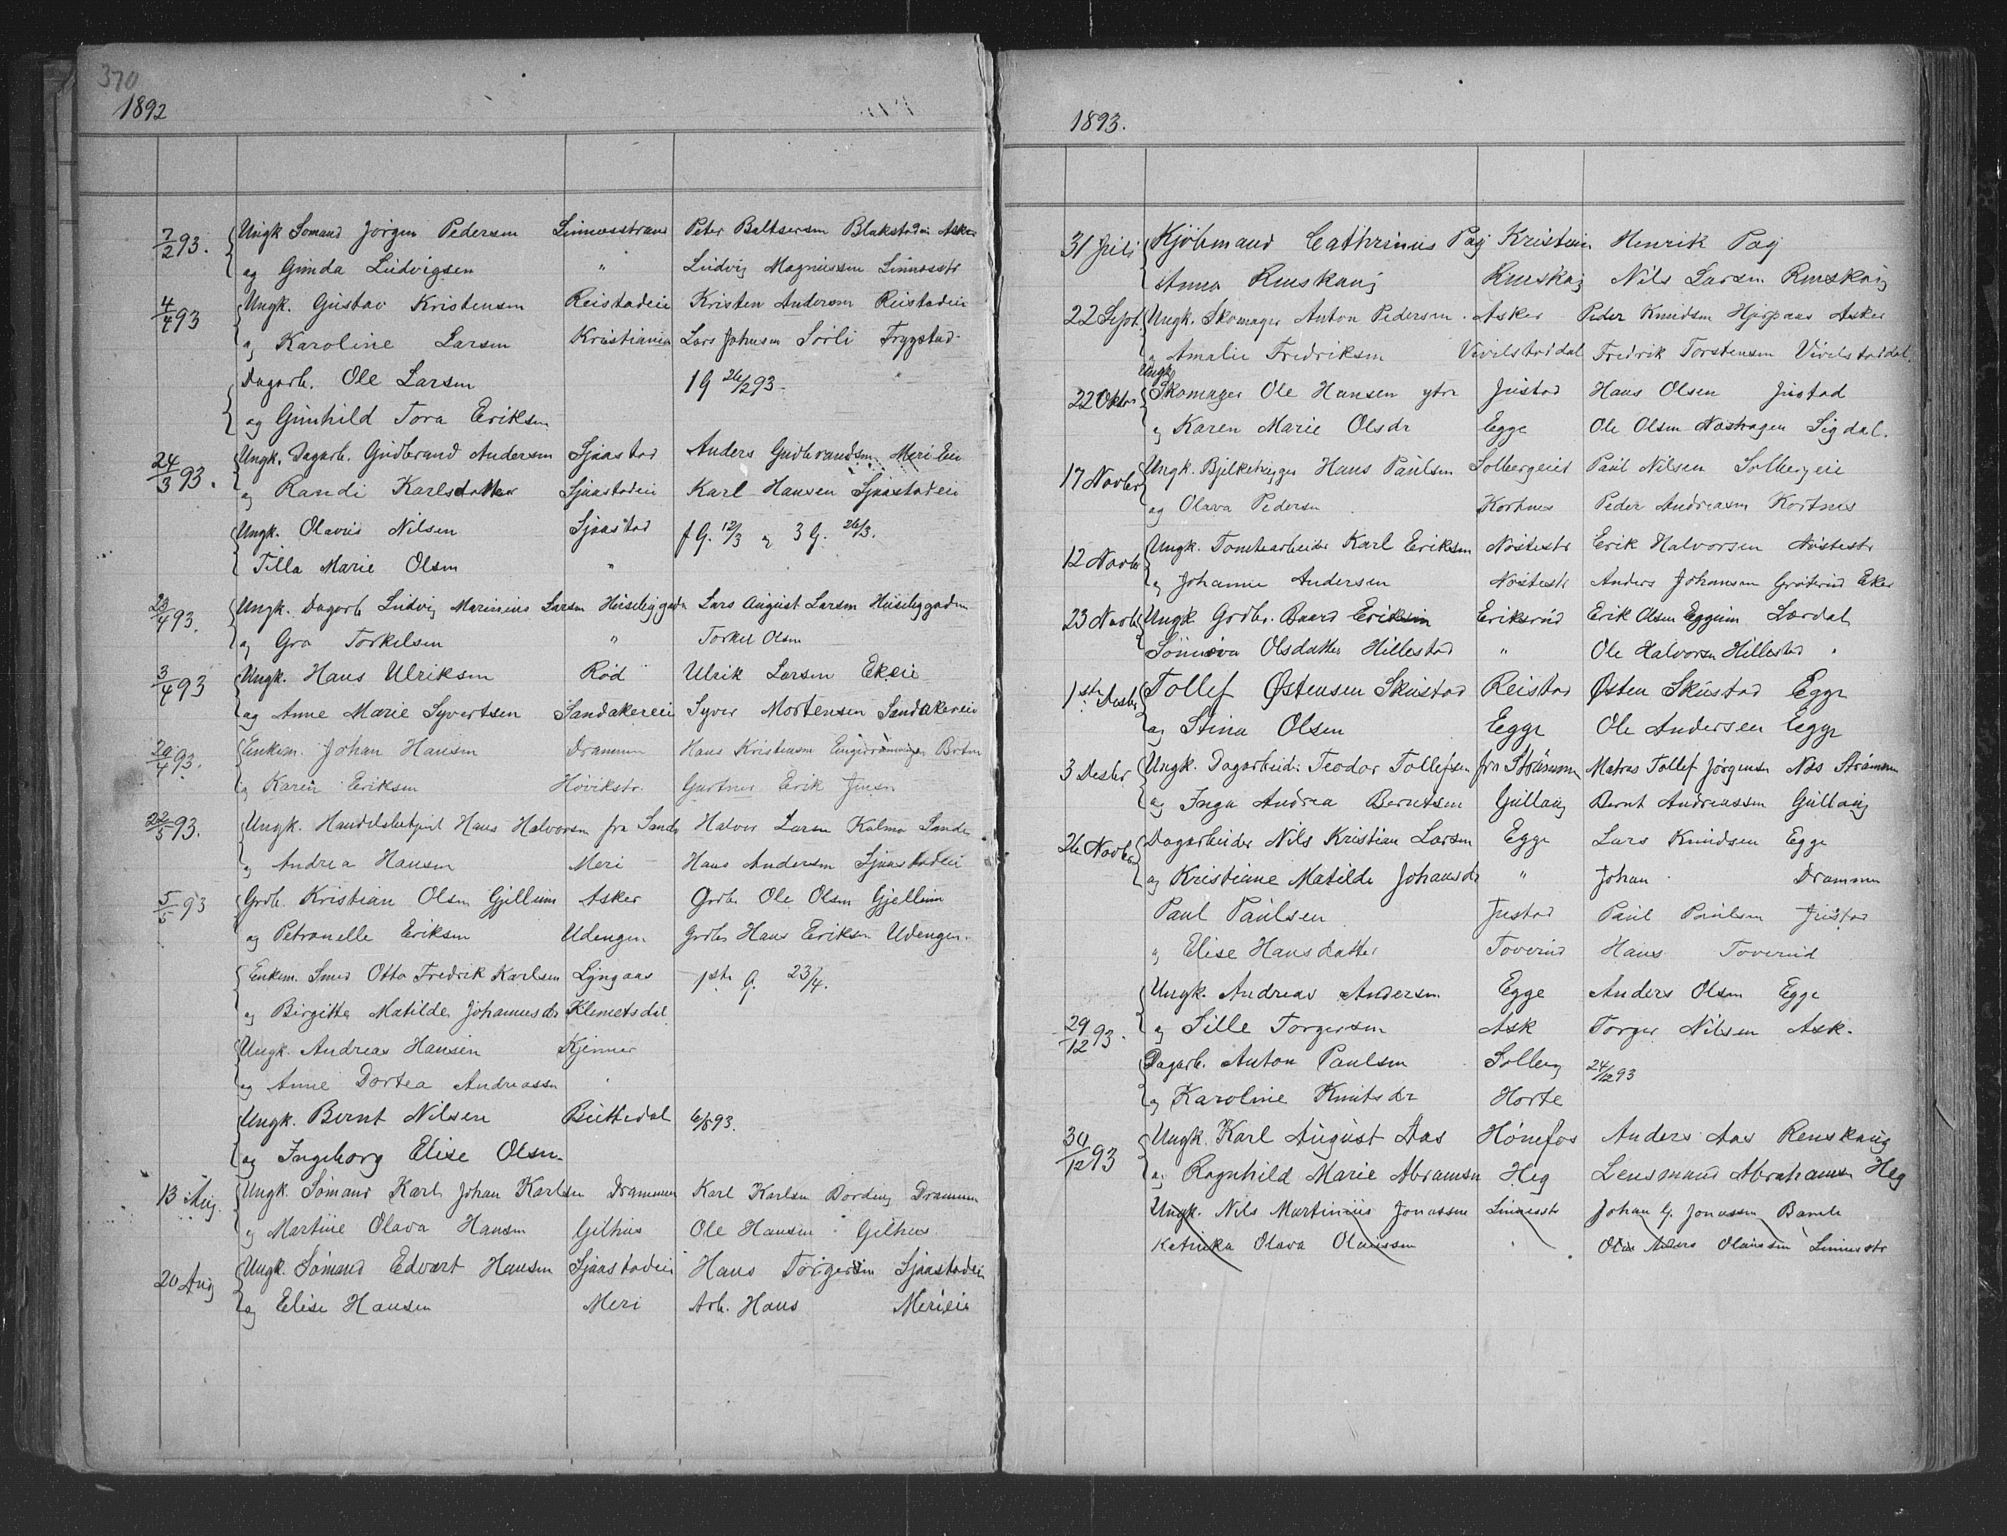 370
1892
7/2 93. Ungk Sömand Jörgen Pedersen Linnesstrand Peter Baltsersen Blakstadei Asker
og Gunda Ludvigsen " Ludvig Magnussen Linnesstr
4/4 93 Ungk. Gustav Kristensen Reistadeie Kristen Andersen Reistadeie
og Karoline Larsen Kristiania Lars Johnsen Sörli Frygstad
Dagarb. Ole Larsen 1 G 26/2 93. "
og Gunhild Tora Eriksen
24/3 93. Ungk. Dagarb. Gudbrand Andersen Sjaastad Anders Gudbrandsen Meri Eie
og Randi Karlsdatter Sjaastadeie Karl Hansen Sjaastadeie
Ungk. Olavus Nilsen Sjaastad f G. 12/3 og 3 G. 26/3.
Tilla Marie Olsen "
23/4 93. Ungk. Dagarb Ludvig Marinius Larsen Huseliggaden Lars August Larsen Huseliggaden
og Gro Torkelsen " Torkel Olsen
3/4 93 Ungk. Hans Ulriksen Röd Ulrik Larsen Ekeie
og Anne Marie Syvertsen Sandakereie Syver Mortensen Sandakereie
20/4 93. Enkem. Johan Hansen Drammen Hans Kristensen
og Karen Eriksen Hövikstr. Gartner Erik Jensen
22/5 93. Ungk. Handelsbetjent Hans Halvorsen fra Sande Halvor Larsen Kalmo Sande
og Andrea Hansen Meri Hans Andersen Sjaastadeie
5/5 93 Grdb. Kristian Olsen Gjellum Asker Grdb. Ole Olsen Gjellum
og Petronelle Eriksen Udengen Grdbr Hans Eriksen Udengen.
Enkem. Smed Otto Fredrik Karlsen Lyngaas 1ste G. 23/4.
og Birgitte Matilde Johannesdr Klemetsdal
Ungk. Andreas Hansen Kjenner
og Anne Dortea Andreassen "
Ungk. Bernt Nilsen Buttedal 6/8 93.
og Ingeborg Elise Olsen
13 Aug. Ungk. Sömand Karl Johan Karlsen Drammen Karl Karlsen Bording Drammen
og Martine Olava Hansen Gilhus Ole Hansen Gilhus
20 Aug Ungk. Sömand Edvart Hansen Sjaastadeie Hans Torgersen Sjaastadeie
og Elise Hansen Meri Arb. Hans Merieie
1893.
31 Juli Kjöbmand Cathrinus Pay Kristian Henrik Pay
Anna Renskaug Renskaug Nils Larsen Renskaug
22 Sept Ungk. Skomager Anton Pedersen Asker Peder Knudsen Hjorpaas Asker
og Amalie Fredriksen Vivelstaddal Fredrik Torstensen Vivelstaddal.
22 Oktbr Ungk Skomager Ole Hansen ytre Justad Hans Olsen Justad
og Karen Marie Olsdr Egge Ole Olsen Nashagen Sigdal.
17 Novbr Ungk. Bjelkehugger Hans Paulsen Solbergeie Paul Nilsen Solbergeie
og Olava Pedersen Kortnes Peder Andreasen Kortnes
12 Novbr Ungk. Tomtearbeider Karl Eriksen Nöstestr Erik Halvorsen Nöstestr
og Johanne Andersen Nöstestr Anders Johansen Groterud Eker
23 Novbr Ungk Grdbr. Baard Eriksen Eriksrud Erik Olsen Eggum Lærdal
Sönneva Olsdatter Hillestad " Ole Halvorsen Hillestad "
1ste Desbr Tollef Østensen Skustad Reistad Østen Skustad Egge
og Stina Olsen Egge Ole Andersen Egge
3 Desbr Ungk. Dagarbeid. Teodor Tollefsen fra Strömmen Matros Tollef Jörgensen Nes Strömmen
og Inga Andrea Berntsen Gullaug Bernt Andreassen Gullaug
26 Novbr Dagarbeider Nils Kristian Larsen Egge Lars Knudsen Egge
og Kristiane Matilde Johansdr " Johan Drammen
Paul Paulsen Justad Paul Paulsen Justad
" Elise Hansdatter Toverud Hans Toverud
29/12 93. Ungk. Andreas Andersen Egge Anders Olsen Egge
og Sille Torgersen Ask Torger Nilsen Ask.
Dagarb. Anton Paulsen Solberg 24/12 93
og Karoline Knutsdr Horte
30/12 93 Ungk. Karl August Aas Hönefos Anders Aas Renskaug
og Ragnhild Marie Abramsen Heg Lensmand Abrahamsen Heg
Ungk. Nils Martinius Jonassen Linnesstr Johan G. Jonassen Bamle
Katrika Olava Olaussen " Anders Olaussen Linnesstr